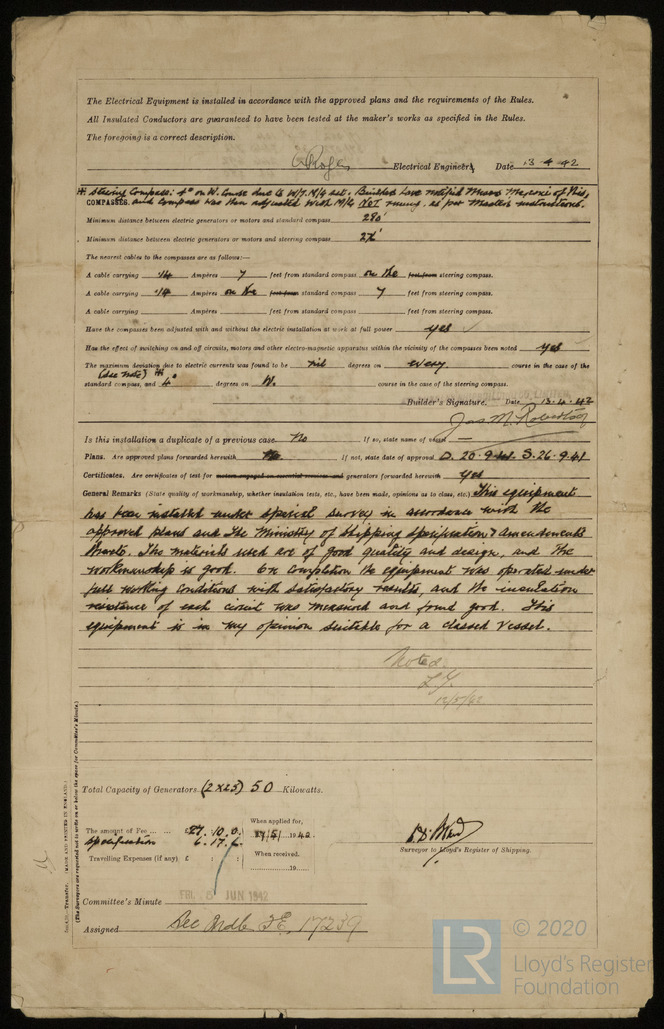 The Electrical Equipment is installed in accordance with the approved plans and the requirements of the Rules.
All Insulated Conductors are guaranteed to have been tested at the maker's works as specified in the Rules.
The foregoing is a correct description.
Electrical Engineers, Date 13-4-42
* Steering Compass: 4° on W. Course due to W/T. M/G set. Builders have notified Messrs Marconi of this,
COMPASSES. and compass was then adjusted with M/G NOT running, as per Master's instructions.
Minimum distance between electric generators or motors and standard compass 280'
Minimum distance between electric generators or motors and steering compass
The nearest cables to the compasses are as follows:—
A cable carrying .14 Ampères 7 feet from standard compass on the feet from steering compass.
A cable carrying .14 Ampères on the feet from standard compass 7 feet from steering compass.
A cable carrying Ampères feet from standard compass feet from steering compass.
Have the compasses been adjusted with and without the electric installation at work at full power yes
Has the effect of switching on and off circuits, motors and other electro-magnetic apparatus within the vicinity of the compasses been noted yes
The maximum deviation due to electric currents was found to be nil degrees on every course in the case of the
(see note) *
standard compass, and 4° degrees on W. course in the case of the steering compass.
Builder's Signature. Date 13-4-42
Jas M. Robertson
Is this installation a duplicate of a previous case No If so, state name of vessel —
Plans. Are approved plans forwarded herewith No If not, state date of approval D. 20.9.41. S. 26.9.41
Certificates. Are certificates of test for motors engaged on essential services and generators forwarded herewith Yes
General Remarks (State quality of workmanship, whether insulation tests, etc., have been made, opinions as to class, etc.) This equipment
has been installed under special survey in accordance with the
approved plans and the Ministry of Shipping Specification & Amendments
thereto. The materials used are of good quality and design, and the
workmanship is good. On completion the equipment was operated under
full working conditions with satisfactory results, and the insulation
resistance of each circuit was measured and found good. This
equipment is in my opinion suitable for a classed vessel.
Noted.
12/5/42
Total Capacity of Generators (2 x 25) 50 Kilowatts.
The amount of Fee ... ... £27. 10. 0.
Specification 6. 17. 6.
When applied for,
1942.
Travelling Expenses (if any) £ : :
When received,
19
Surveyor to Lloyd's Register of Shipping.
FRI. 5 JUN 1942
Committee's Minute
Assigned See F.E. 17239
(MADE AND PRINTED IN ENGLAND.)
(The Surveyors are requested not to write on or below the space for Committee's Minute.)
LR
© 2020
Lloyd's Register
Foundation